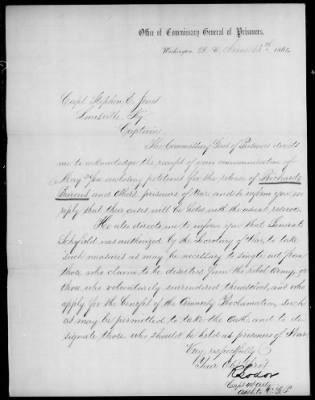 Office of Commissary General of Prisoners,
Washington, D. C. 1864
Capt. Stephen E. Jones
Louisville, Ky
Captain
The Commissary Genl of Prisoners directs
me to acknowledge the receipt of your communication of
May enclosing petitions for the release of Richard
and others prisoners of War, and to inform you in
reply that their cases will be filed, with the usual
He also directs me to inform you that General
Schofield was authorized by the Secretary of War, to take
such measures as may be necessary to single out from
those who claim to be deserters from the rebel Army, or
those who voluntarily surrendered themselves, and who
apply for the benefit of the Amnesty Proclamation, such
as may be permitted to take the Oath, and to de-
signate those who should be held as prisoners of War
Very respectfully